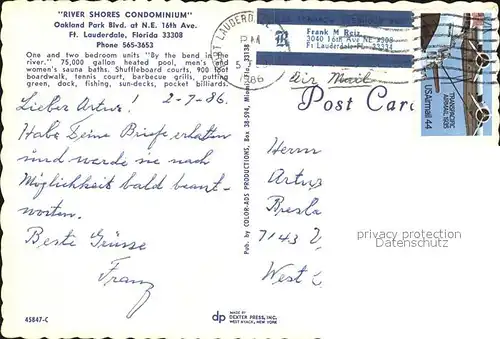 "RIVER SHORES CONDOMINIUM"
Oakland Park Blvd. at N.E. 16th Ave.
Ft. Lauderdale, Florida 33308
Phone 565-3653
One and two bedroom units "By the bend in the
river." 75,000 gallon heated pool, men's and
women's sauna baths. Shuffleboard courts, 900 foot
boardwalk, tennis court, barbecue grills, putting
green, dock, fishing, sun-decks, pocket billiards.
Lieber Artur! 2-7-86.
Habe Deine Briefe erhalten
und werde sie nach
Möglichkeit bald beant-
worten.
Beste Grüsse
Franz
45847-C
Pub. by COLOR-ADS PRODUCTIONS, Box 38-594, Miami, Fla. 33138
dp
MADE BY
DEXTER PRESS, INC.
WEST NYACK, NEW YORK
FORT LAUDERD
PM
5
1986
R
Frank M Reiz
3040 16th Ave NE #308
Ft Lauderdale FL 33334
Air Mail
Post Card
TRANSPACIFIC
AIRMAIL 1935
USAirmail 44
Herrn
Artur
Bresla
7143
West
privacy protection
Datenschutz